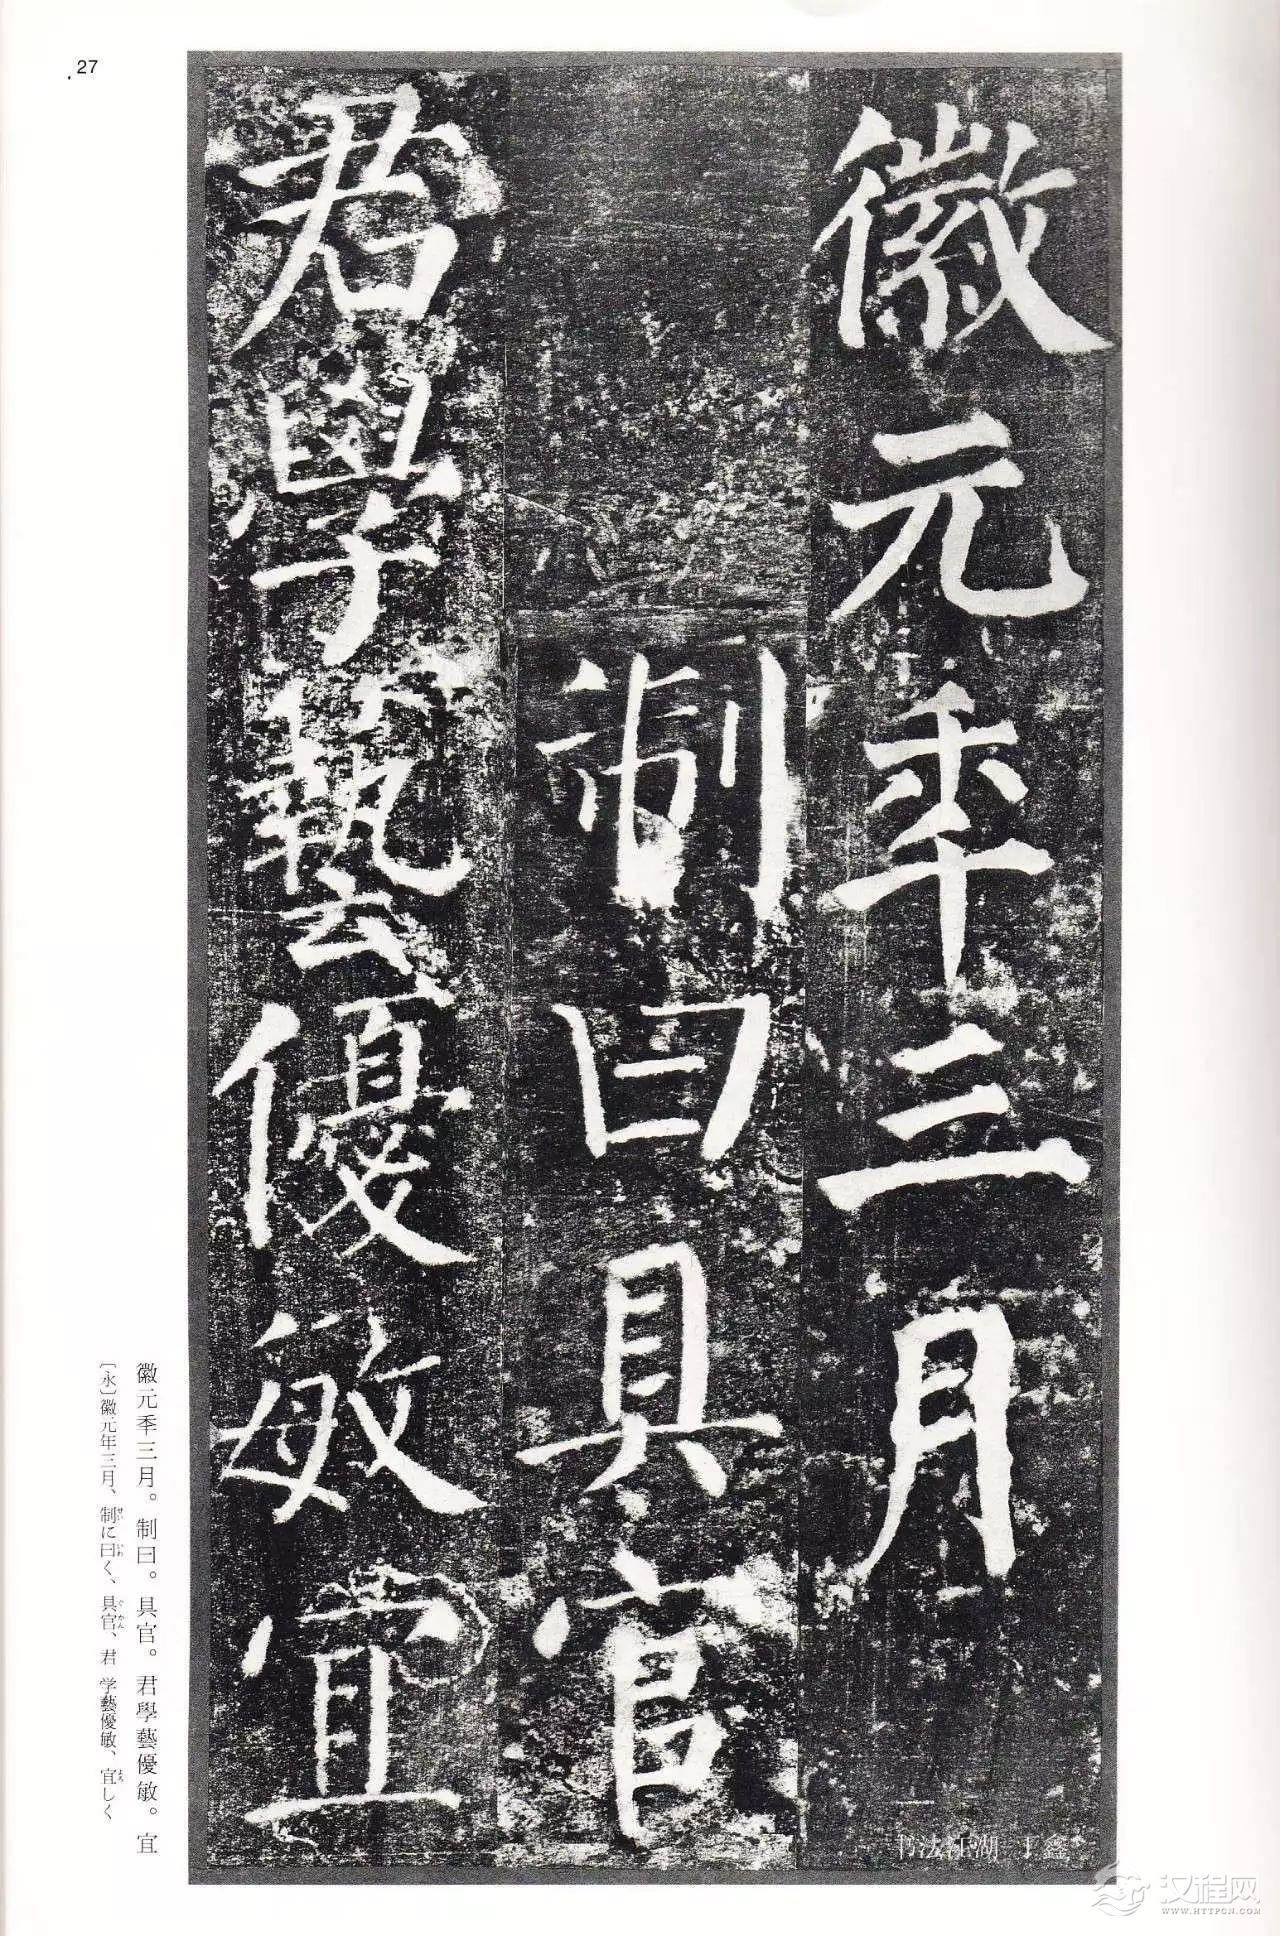 27
徽元秊三月
制曰具官
君學藝優敏宜
徽元秊三月。制曰。具官。君學藝優敏。宜
〔永〕徽元年三月、制に曰く、具官、君 学藝優敏、宜しく
せい いわ ぐかん よろ
书法江湖 丁鑫
汉程网
WWW.HTTPCN.COM